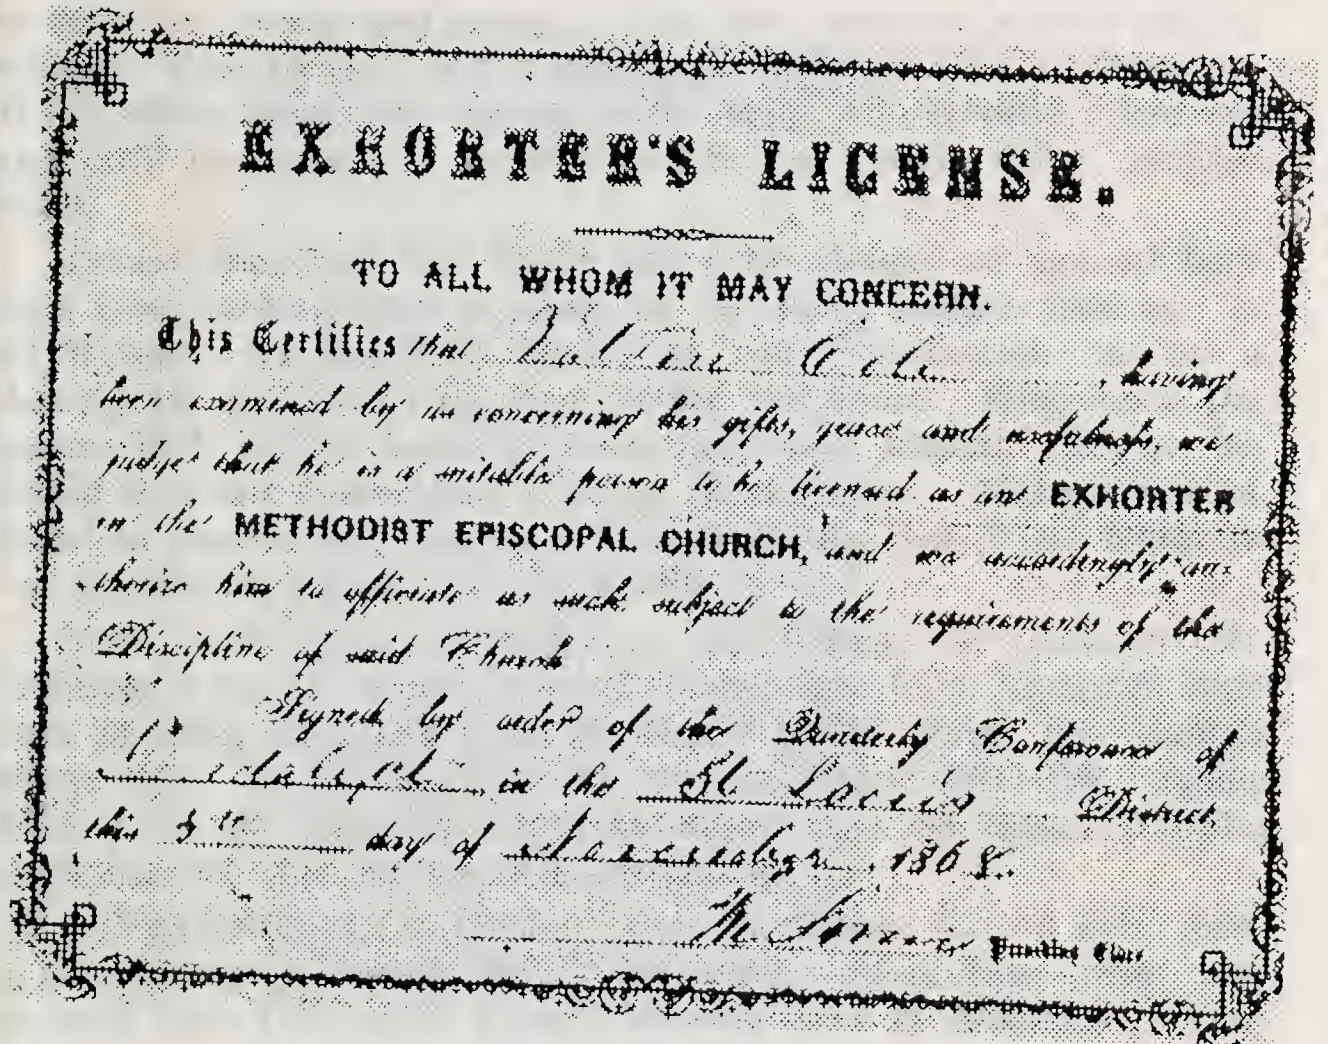 EXHORTER'S LICENSE.
TO ALL WHOM IT MAY CONCERN.
This Certifies that , having
been examined by us concerning his gifts, grace and usefulness, we
judge that he is a suitable person to be licensed as an EXHORTER
in the METHODIST EPISCOPAL CHURCH, and we accordingly au-
thorize him to officiate as such subject to the requirements of the
Discipline of said Church
Signed by order of the Quarterly Conference of
in the St Louis District,
this 5th day of 1868.
Presiding Elder